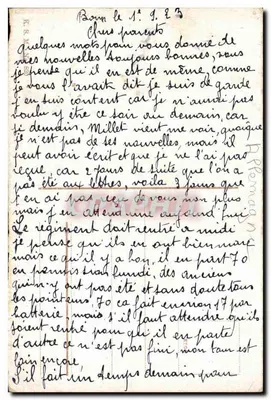 Bonn le 1e 9. 23
Chers parents
Quelques mots pour vous donné de
mes nouvelles toujours bonnes, vous
je pense qu'il en est de même, comme
je vous l'avait dit je suis de garde
j'en suis content car je n'aurai pas
voulu y être ce soir ou demain, car
si demain, Millet vient me voir, quoique
je n'est pas de ses nouvelles, mais il
peut avoir écrit et que je ne l'ai pas
reçue, car 2 jours de suite que l'on a
pas été aux lettres, voilà 3 jours que
j'en ai pas reçu de vous non plus
mais j'en attend une aujourd'hui
Le régiment doit rentré a midi
je pense qu'ils en ont bien marre
mais ce qu'il y a bon, il en part 70
en permission lundi, des anciens
qui n'y ont pas été et sans doute tous
les pointeurs, 70 ca fait environ 17 par
batterie, mais s'il faut attendre qu'ils
soient rentré pour qu'il en parte
d'autre ce n'est pas fini, mon tour est
loin encore,
S'il fait un temps demain pour